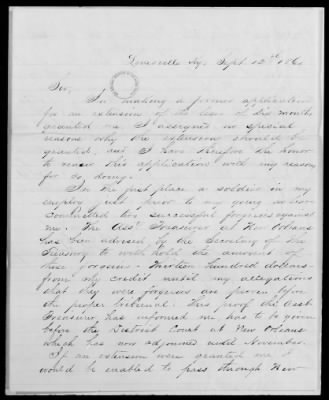 Louisville Ky. Sept. 12th 186
Sir,
In making a former application
for an extension of the leave of six months
granted me I assigned no special
reasons why the extension should be
granted, and I have therefore the honor
to renew this application with my reasons
for so doing.
In the first place a soldier in my
employ just prior to my going on leave
committed two successful forgeries against
me. The Asst Treasurer at New Orleans
has been advised by the Secretary of the
Treasury to withhold the amount of
these forgeries - Thirteen hundred dollars -
from my credit until my allegations
that they were forgeries are proven before
the proper tribunal. This proof the Asst
Treasurer has informed me has to be given
before the District Court at New Orleans
which has now adjourned until November.
If an extension were granted me I
would be enabled to pass through New